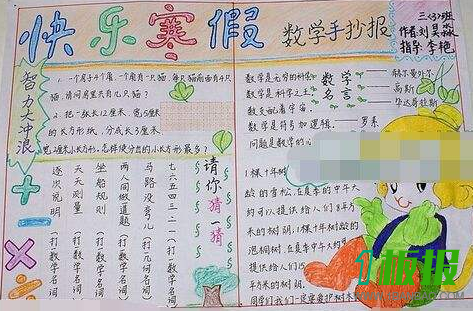 快乐寒假
数学手抄报
三(3)班
作者刘昊淼
指导:李艳
智力大冲浪
1、一个房子4个角,一个角有一只猫,每只猫前面有4只
猫,请问房里共有几只猫?
2、把一张长12厘米,宽5厘米
的长方形纸,分成长3厘米
宽2厘米小长方形,怎样使分出的小长方形最多?
请你猜一猜
七六五四三二一(打一数学名词)
马路没弯儿(打一几何名词)
两人同做道题(打一数学名词)
坐船规则(打一数学名词)
天天测量(打一数学名词)
逐次说明(打一数学名词)
数学名言
数学是无穷的科学
赫尔曼外尔
数学是科学之王
高斯
数支配着宇宙
毕达哥拉斯
数学是符号加逻辑
罗素
问题是数学的
1棵十年树
龄的雪松,在夏季的中午大
约可以提供给人们
的树阴,1棵十年树龄的
泡桐树,在夏季中午大约
提供给人们
平方米的树阴,
同学们我们一定要爱护树木
板报